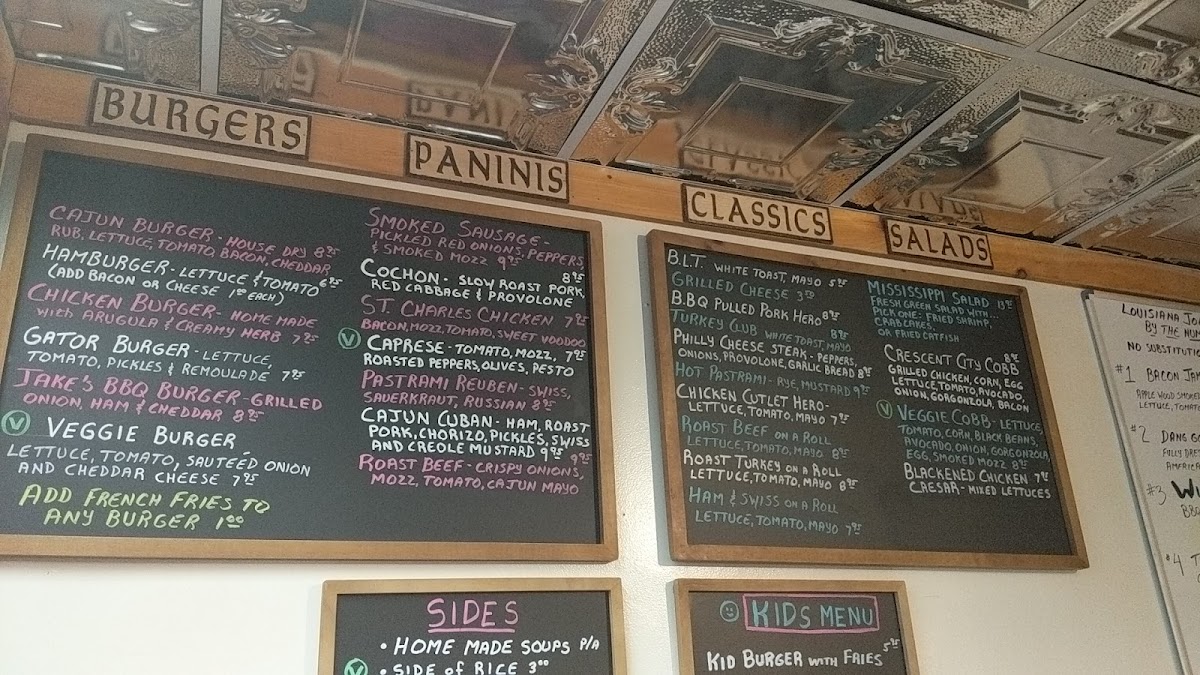 BURGERS
CAJUN BURGER - HOUSE DRY 8.95
RUB, LETTUCE, TOMATO, BACON, CHEDDAR
HAMBURGER - LETTUCE & TOMATO 6.95
(ADD BACON OR CHEESE 1.00 EACH)
CHICKEN BURGER - HOME MADE
WITH ARUGULA & CREAMY HERB 7.25
GATOR BURGER - LETTUCE,
TOMATO, PICKLES & REMOULADE 7.95
JAKE'S BBQ BURGER - GRILLED
ONION, HAM & CHEDDAR 8.25
V VEGGIE BURGER
LETTUCE, TOMATO, SAUTEÉD ONION
AND CHEDDAR CHEESE 7.95
ADD FRENCH FRIES TO
ANY BURGER 1.00
PANINIS
SMOKED SAUSAGE -
PICKLED RED ONIONS, PEPPERS
& SMOKED MOZZ 9.25
COCHON - SLOW ROAST PORK, 8.95
RED CABBAGE & PROVOLONE
ST. CHARLES CHICKEN 7.95
BACON, MOZZ, TOMATO, SWEET VOODOO
V CAPRESE - TOMATO, MOZZ, 7.95
ROASTED PEPPERS, OLIVES, PESTO
PASTRAMI REUBEN - SWISS,
SAUERKRAUT, RUSSIAN 8.95
CAJUN CUBAN - HAM, ROAST
PORK, CHORIZO, PICKLES, SWISS
AND CREOLE MUSTARD 9.95
ROAST BEEF - CRISPY ONIONS, 9.95
MOZZ, TOMATO, CAJUN MAYO
CLASSICS
B.L.T. WHITE TOAST MAYO 5.95
GRILLED CHEESE 3.50
B.B.Q PULLED PORK HERO 8.95
TURKEY CLUB WHITE TOAST, MAYO 8.95
PHILLY CHEESE STEAK - PEPPERS,
ONIONS, PROVOLONE, GARLIC BREAD 8.95
HOT PASTRAMI - RYE, MUSTARD 9.25
CHICKEN CUTLET HERO -
LETTUCE, TOMATO, MAYO 7.95
ROAST BEEF ON A ROLL
LETTUCE, TOMATO, MAYO 8.25
ROAST TURKEY ON A ROLL
LETTUCE, TOMATO, MAYO 8.95
HAM & SWISS ON A ROLL
LETTUCE, TOMATO, MAYO 7.95
SALADS
MISSISSIPPI SALAD
FRESH GREEN SALAD WITH...
PICK ONE: FRIED SHRIMP,
CRABCAKES,
OR FRIED CATFISH
CRESCENT CITY COBB 8.95
GRILLED CHICKEN, CORN, EGG
LETTUCE, TOMATO, AVOCADO,
ONION, GORGONZOLA, BACON
V VEGGIE COBB - LETTUCE,
TOMATO, CORN, BLACK BEANS,
AVOCADO, ONION, GORGONZOLA,
EGG, SMOKED MOZZ 8.25
BLACKENED CHICKEN 7.95
CAESAR - MIXED LETTUCES
SIDES
• HOME MADE SOUPS P/A
V • SIDE OF RICE 3.00
KIDS MENU
KID BURGER WITH FRIES 5.95
LOUISIANA
BY THE
NO
#1 BACON
APPLE WOOD
LETTUCE,
#2 DANG
FULLY
#3
BBQ
#4